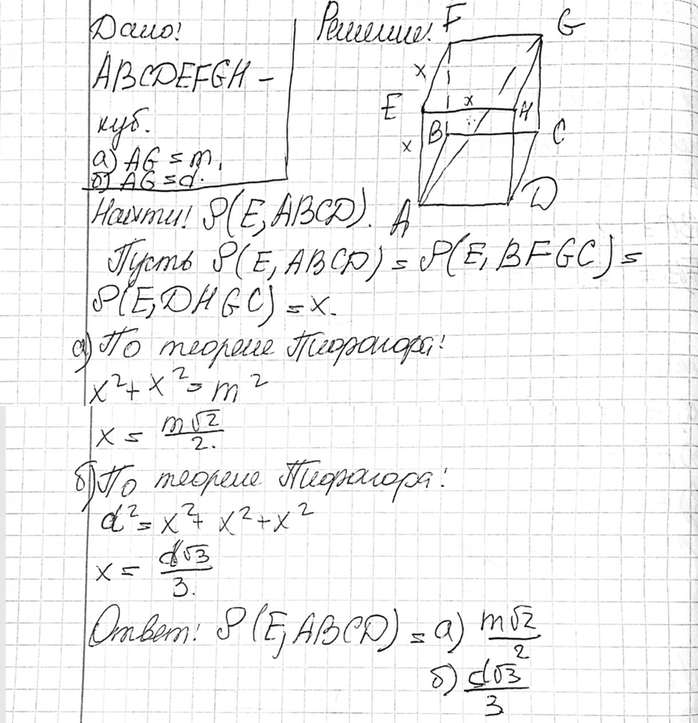 Дано! Решение!
ABCDEFGH –
куб.
а) AG = m,
б) AG = d.
F G
x
E x H
x B C
A D
Найти! ρ(E, ABCD).
Пусть ρ(E, ABCD) = ρ(E, BFGC) =
ρ(E, DHGC) = x.
а) По теореме Пифагора!
x² + x² = m²
x = m√2/2.
б) По теореме Пифагора!
d² = x² + x² + x²
x = d√3/3.
Ответ! ρ(E, ABCD) = а) m√2/2
б) d√3/3